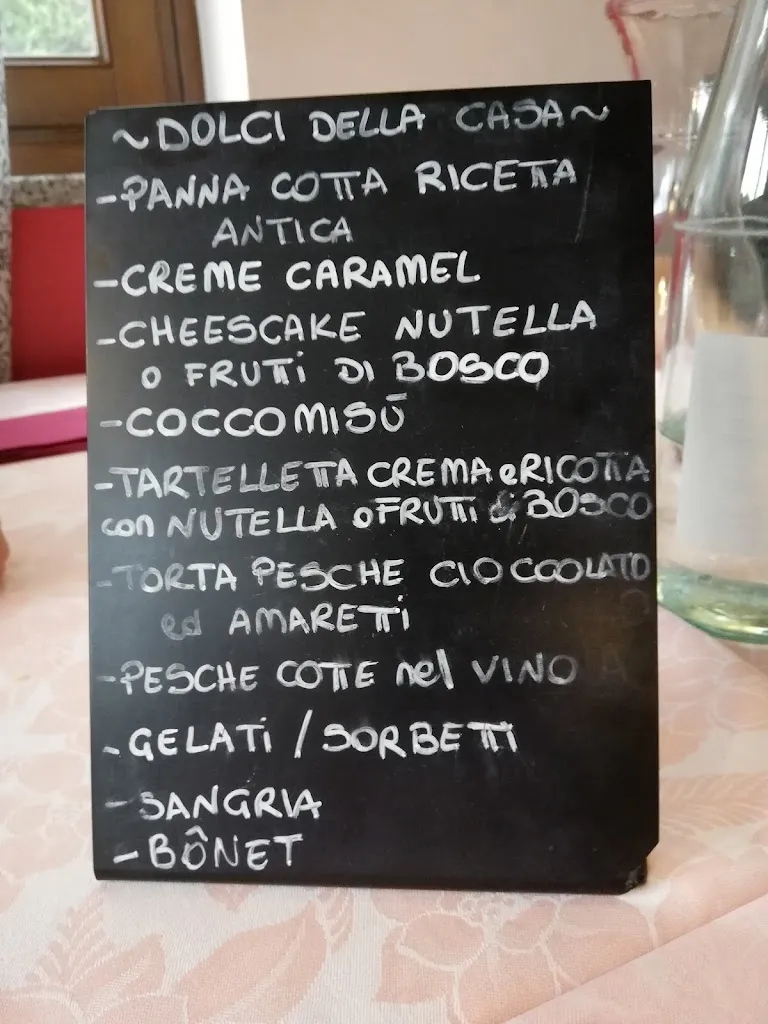 ~DOLCI DELLA CASA~
-PANNA COTTA RICETTA
ANTICA
-CREME CARAMEL
-CHEESCAKE NUTELLA
O FRUTTI DI BOSCO
-COCCOMISÙ
-TARTELLETTA CREMA e RICOTTA
con NUTELLA o FRUTTI di BOSCO
-TORTA PESCHE CIOCCOLATO
ed AMARETTI
-PESCHE COTTE nel VINO
-GELATI / SORBETTI
-SANGRIA
-BÔNET